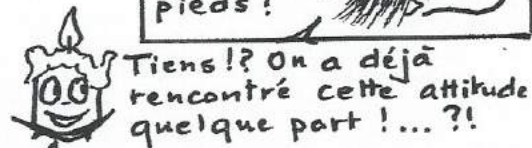 pieds !
Tiens !? On a déjà
rencontré cette attitude
quelque part !... ?!